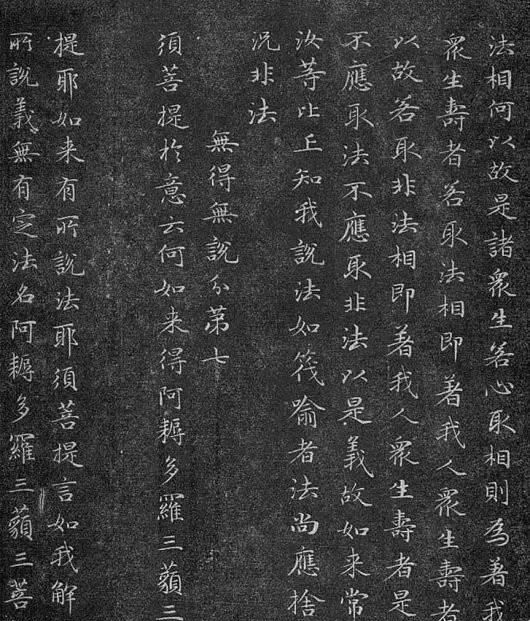 法相何以故是諸衆生若心取相則為著我
衆生壽者若取法相即著我人衆生壽者
以故若取非法相即著我人衆生壽者是
不應取法不應取非法以是義故如来常
汝等比丘知我說法如筏喻者法尚應捨
况非法
無得無說分第七
須菩提於意云何如来得阿耨多羅三藐三
提耶如来有所說法耶須菩提言如我解
所說義無有定法名阿耨多羅三藐三菩